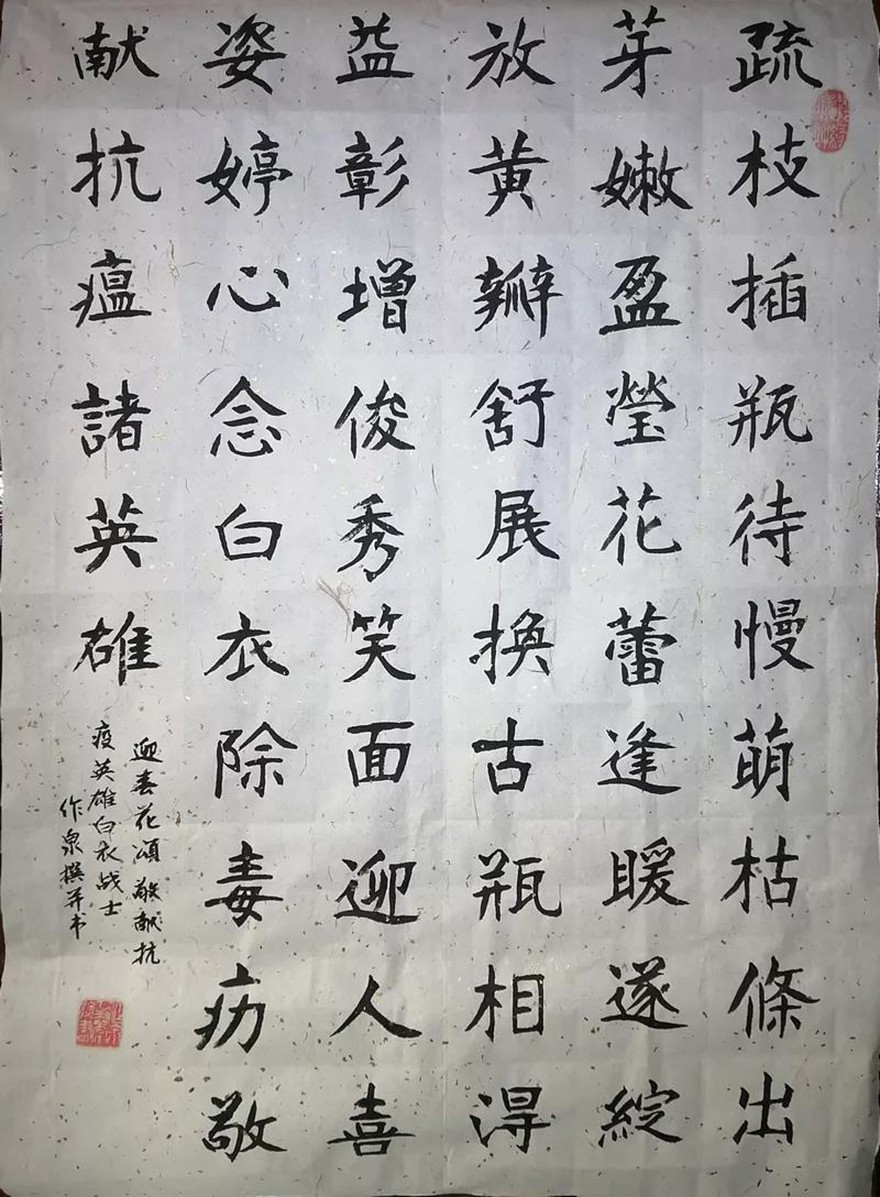 疏枝插瓶待慢萌枯條出
芽嫩盈瑩花蕾逢暖遂綻
放黄瓣舒展换古瓶相得
益彰增俊秀笑面迎人喜
姿婷心念白衣除毒疠敬
献抗瘟諸英雄
迎春花頌敬献抗
疫英雄白衣战士
作泉撰并书